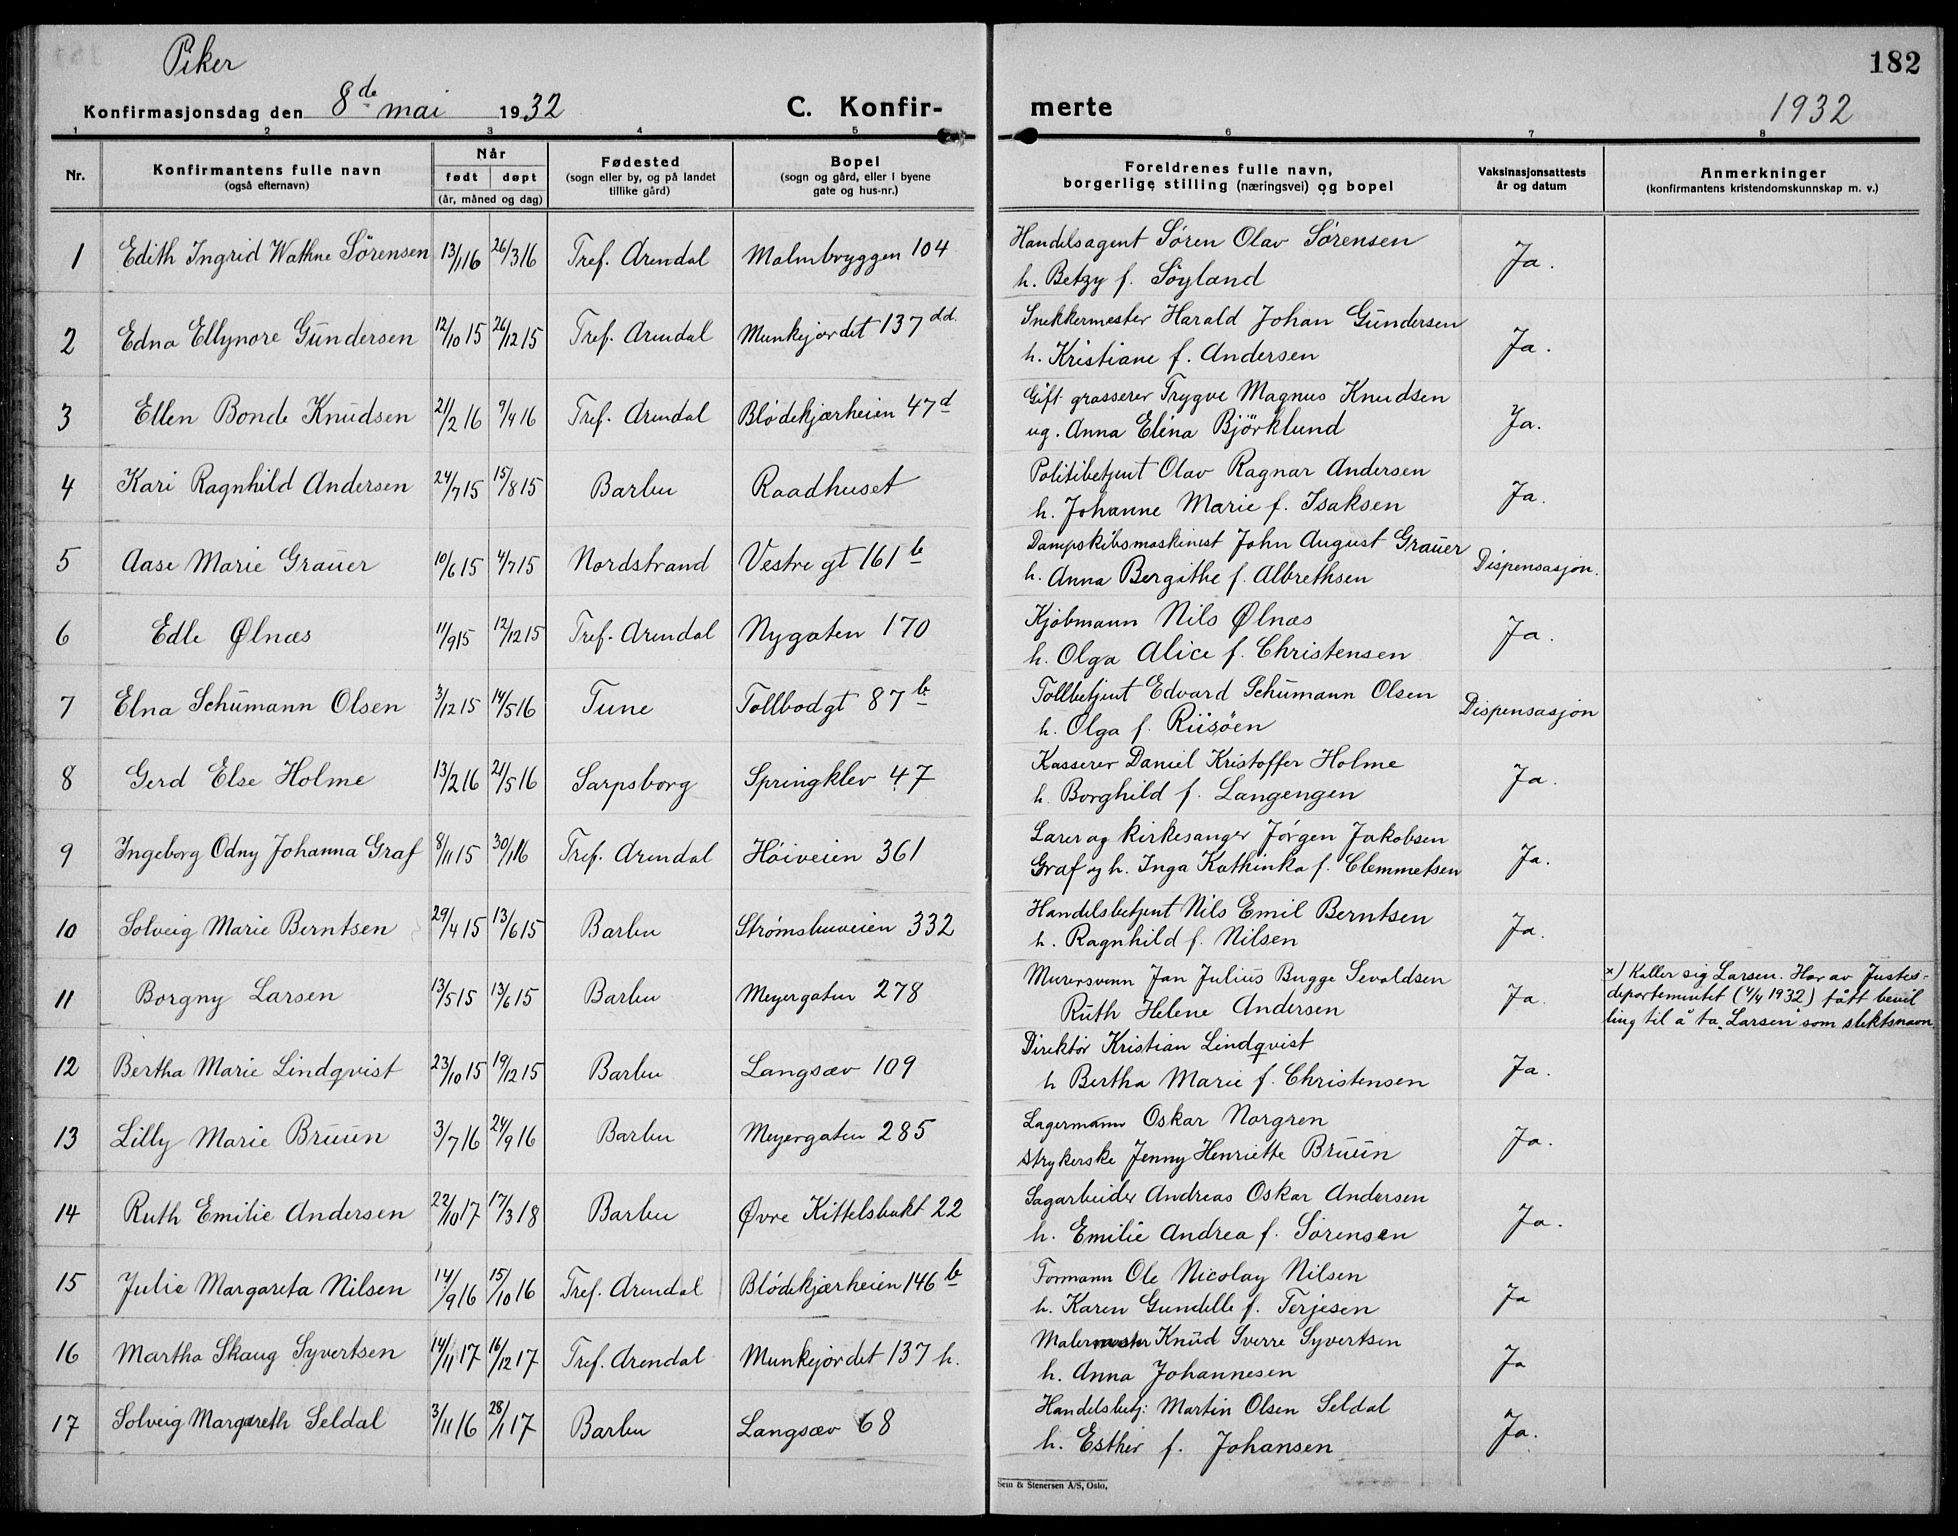 Piker
182
Konfirmasjonsdag den 8de mai 1932
C. Konfir-
merte
1932
1 2 3 4 5 6 7 8
Nr.
Konfirmantens fulle navn
(også efternavn)
Når
født døpt
(år, måned og dag)
Fødested
(sogn eller by, og på landet
tillike gård)
Bopel
(sogn og gård, eller i byene
gate og hus-nr.)
Foreldrenes fulle navn,
borgerlige stilling (næringsvei) og bopel
Vaksinasjonsattests
år og datum
Anmerkninger
(konfirmantens kristendomskunnskap m. v.)
1 Edith Ingrid Wathne Sörensen 13/1 16 26/3 16 Tref. Arendal Malmbryggen 104 Handelsagent Sören Olav Sörensen
h. Betzy f. Söyland Ja.
2 Edna Ellynore Gundersen 12/10 15 26/12 15 Tref. Arendal Munkejordet 137 dd. Snekkermester Harald Johan Gundersen
h. Kristiane f. Andersen Ja.
3 Ellen Bonde Knudsen 21/2 16 9/4 16 Tref. Arendal Blödekjærheien 47d Gift grosserer Trygve Magnus Knudsen
ug. Anna Elina Björklund Ja.
4 Kari Ragnhild Andersen 24/7 15 15/8 15 Barbu Raadhuset Politibetjent Olav Ragnar Andersen
h. Johanne Marie f. Isaksen Ja.
5 Aase Marie Grauer 10/6 15 4/7 15 Nordstrand Vestre gt 161 b Dampskibsmaskinist John August Grauer
h. Anna Bergithe f. Albrethsen Dispensasjon.
6 Edle Ølnæs 11/9 15 12/12 15 Tref. Arendal Nygaten 170 Kjöbmann Nils Ølnæs
h. Olga Alice f. Christensen Ja.
7 Elna Schumann Olsen 3/12 15 14/5 16 Tune Tollbodgt 87 b Tollbetjent Edvard Schumann Olsen
h. Olga f. Riisöen Dispensasjon
8 Gerd Else Holme 13/2 16 21/5 16 Sarpsborg Springklev 47 Kasserer Daniel Kristoffer Holme
h. Borghild f. Langengen Ja.
9 Ingeborg Odny Johanna Graf 8/11 15 30/1 16 Tref. Arendal Höiveien 361 Lærer og kirkesanger Jörgen Jakobsen
Graf og h. Inga Kathinka f. Clemmetsen Ja.
10 Solveig Marie Berntsen 29/4 15 13/6 15 Barbu Strømsbuveien 332 Handelsbetjent Nils Emil Berntsen
h. Ragnhild f. Nilsen Ja.
11 Borgny Larsen 13/5 15 13/6 15 Barbu Meyergaten 278 Murersvenn Jan Julius Bugge Sevaldsen
Ruth Helene Andersen Ja. x) Kaller sig Larsen. Har av Justis-
departementet (4/4 1932) fått bevil
ling til å ta "Larsen" som slektsnavn.
12 Bertha Marie Lindqvist 23/10 15 19/12 15 Barbu Langsæv 109 Direktör Kristian Lindqvist
h Bertha Marie f. Christensen Ja.
13 Lilly Marie Bruun 3/7 16 24/9 16 Barbu Meyergaten 285 Lagermann Oskar Norgren
strykerske Jenny Henriette Bruun Ja.
14 Ruth Emilie Andersen 22/10 17 17/3 18 Barbu Øvre Kittelsbukt 22 Sagarbeider Andreas Oskar Andersen
h. Emilie Andrea f. Sörensen Ja.
15 Julie Margareta Nilsen 14/9 16 15/10 16 Tref. Arendal Blödekjærheien 146 b Formann Ole Nicolay Nilsen
h. Karen Gundelle f. Terjesen Ja
16 Martha Skaug Syvertsen 14/11 17 16/12 17 Tref. Arendal Munkejordet 137 h. Malermester Knud Sverre Syvertsen
h. Anna Johannesen Ja
17 Solveig Margareth Seldal 3/11 16 28/1 17 Barbu Langsæv 68 Handelsbetj: Martin Olsen Seldal
h. Esther f. Johansen Ja.
Sem & Stenersen A/S, Oslo.